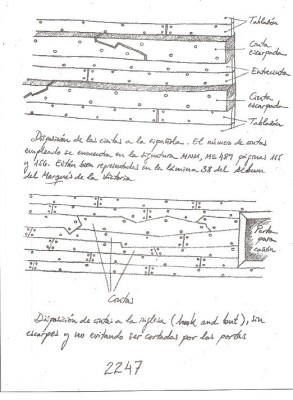 Tablazón
Cinta
escarpada
Entrecinta
Cinta
escarpada
Tablazón
Disposición de las cintas a la española. El número de cintas
empleado se encuentra en la signatura MNM, MS 487 páginas 155
y 156. Están bien representadas en la lámina 38 del Álbum
del Marqués de la Victoria
Porta
para
cañón
Cintas
Disposición de cintas a la inglesa (hook and butt), sin
escarpes y no evitando ser cortadas por las portas
2247